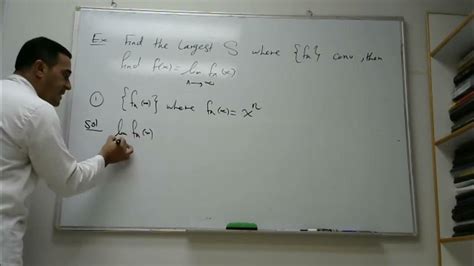 Ex Find the Largest S where {fn} conv, then
find f(x) = lim fn(x)
n→∞
① {fn(x)} where fn(x) = x^n
Sol lim fn(x)